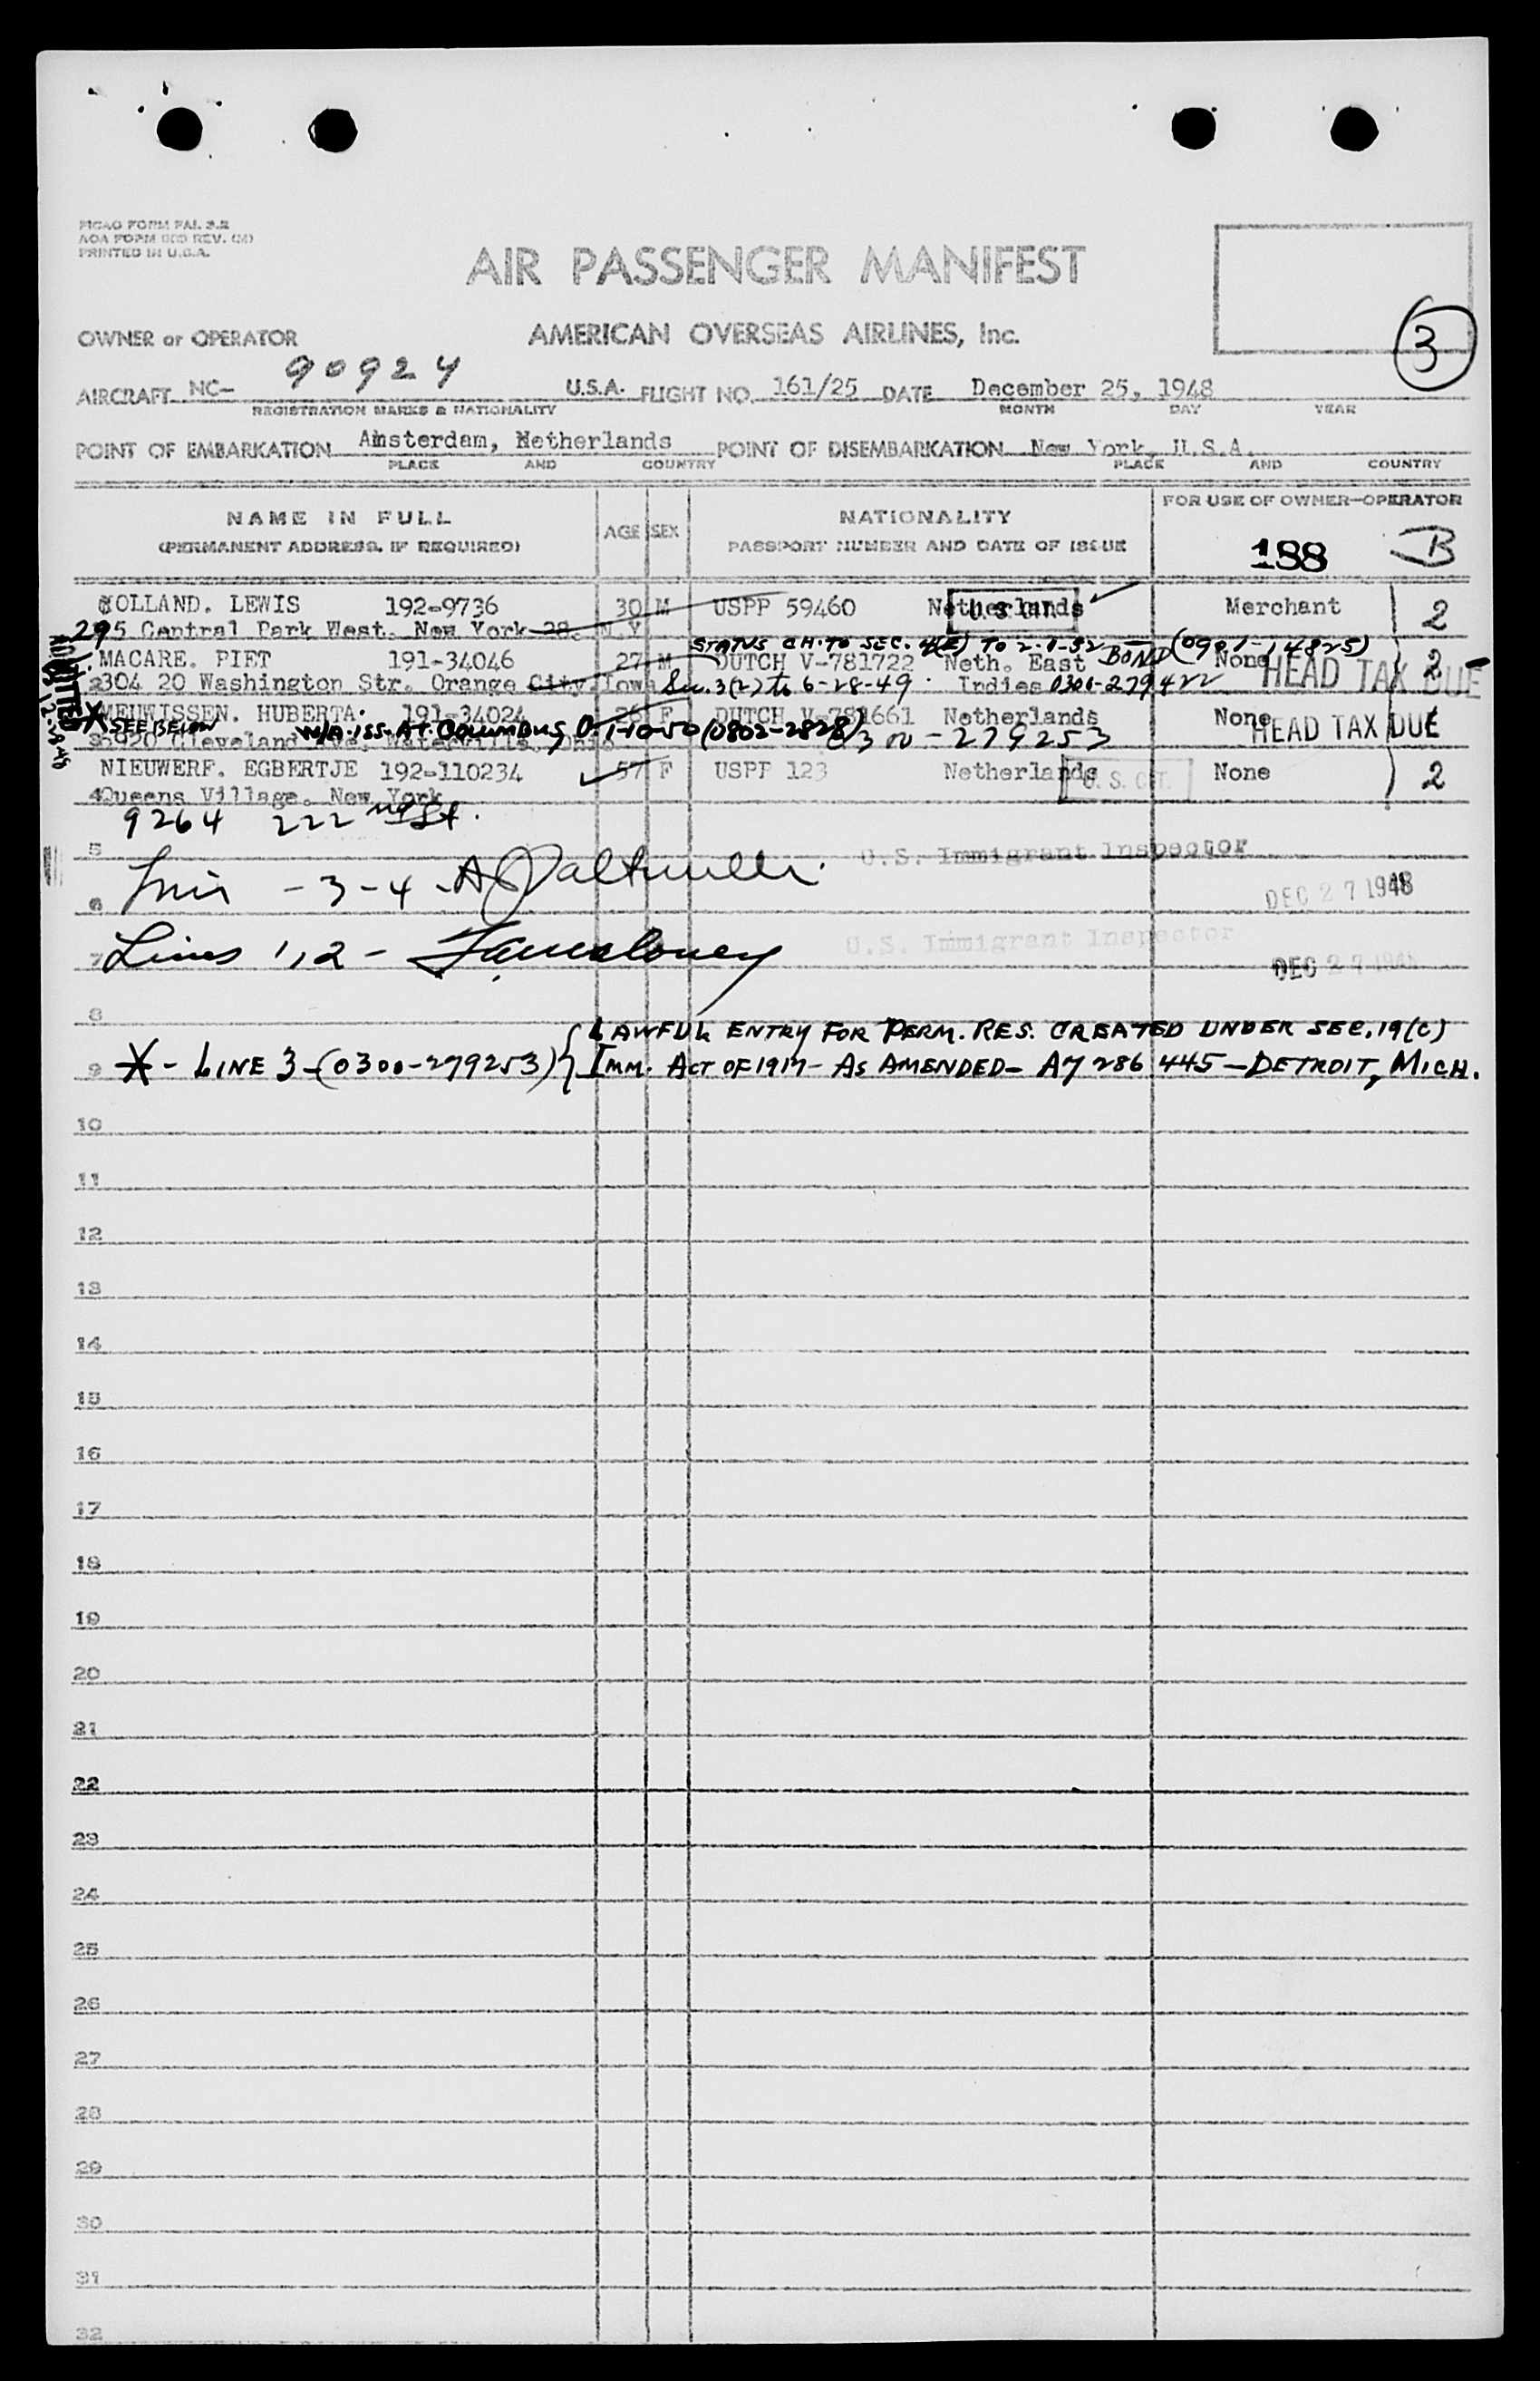 PICAO FORM FAL 3.2
AOA FORM REV. (M)
PRINTED IN U.S.A.
AIR PASSENGER MANIFEST
OWNER or OPERATOR AMERICAN OVERSEAS AIRLINES, Inc.
3
AIRCRAFT NC- 90924 U.S.A. FLIGHT NO. 161/25 DATE December 25, 1948
REGISTRATION MARKS & NATIONALITY MONTH DAY YEAR
POINT OF EMBARKATION Amsterdam, Netherlands POINT OF DISEMBARKATION New York, U.S.A.
PLACE AND COUNTRY PLACE AND COUNTRY
NAME IN FULL AGE SEX NATIONALITY FOR USE OF OWNER-OPERATOR
(PERMANENT ADDRESS, IF REQUIRED) PASSPORT NUMBER AND DATE OF ISSUE 188 B
HOLLAND. LEWIS 192-9736 30 M USPP 59460 Netherlands U S CIT Merchant 2
295 Central Park West. New York N.Y
STATUS CH. TO SEC. 4(E) TO 2-1-52 BOND (0901-14825)
MACARE. PIET 191-34046 27 M DUTCH V-781722 Neth. East None HEAD TAX DUE 2
2 304 20 Washington Str. Orange City. Iowa Sec. 3(2) to 6-28-49. Indies 0300-279422
ADMITTED
MEUWISSEN. HUBERTA. 191-34024 26 F DUTCH V-781661 Netherlands None HEAD TAX DUE
* SEE BELOW W/A. ISS. AT. COLUMBUS, O. 1-10-50 (0802-2828) 0300-279253
NIEUWERF. EGBERTJE 192-110234 57 F USPP 123 Netherlands U. S. CIT. None 2
4 Queens Village. New York
9264 222 nd St.
5 U.S. Immigrant Inspector
6 -3-4- DEC 27 1948
7 Lines 1,2- U.S. Immigrant Inspector
DEC 27 1948
8 LAWFUL ENTRY FOR PERM. RES. CREATED UNDER SEC. 19(C)
9 * - LINE 3 - (0300-279253) { IMM. ACT OF 1917 - AS AMENDED - A7 286 445 - DETROIT, MICH.
10
11
12
13
14
15
16
17
18
19
20
21
22
23
24
25
26
27
28
29
30
31
32